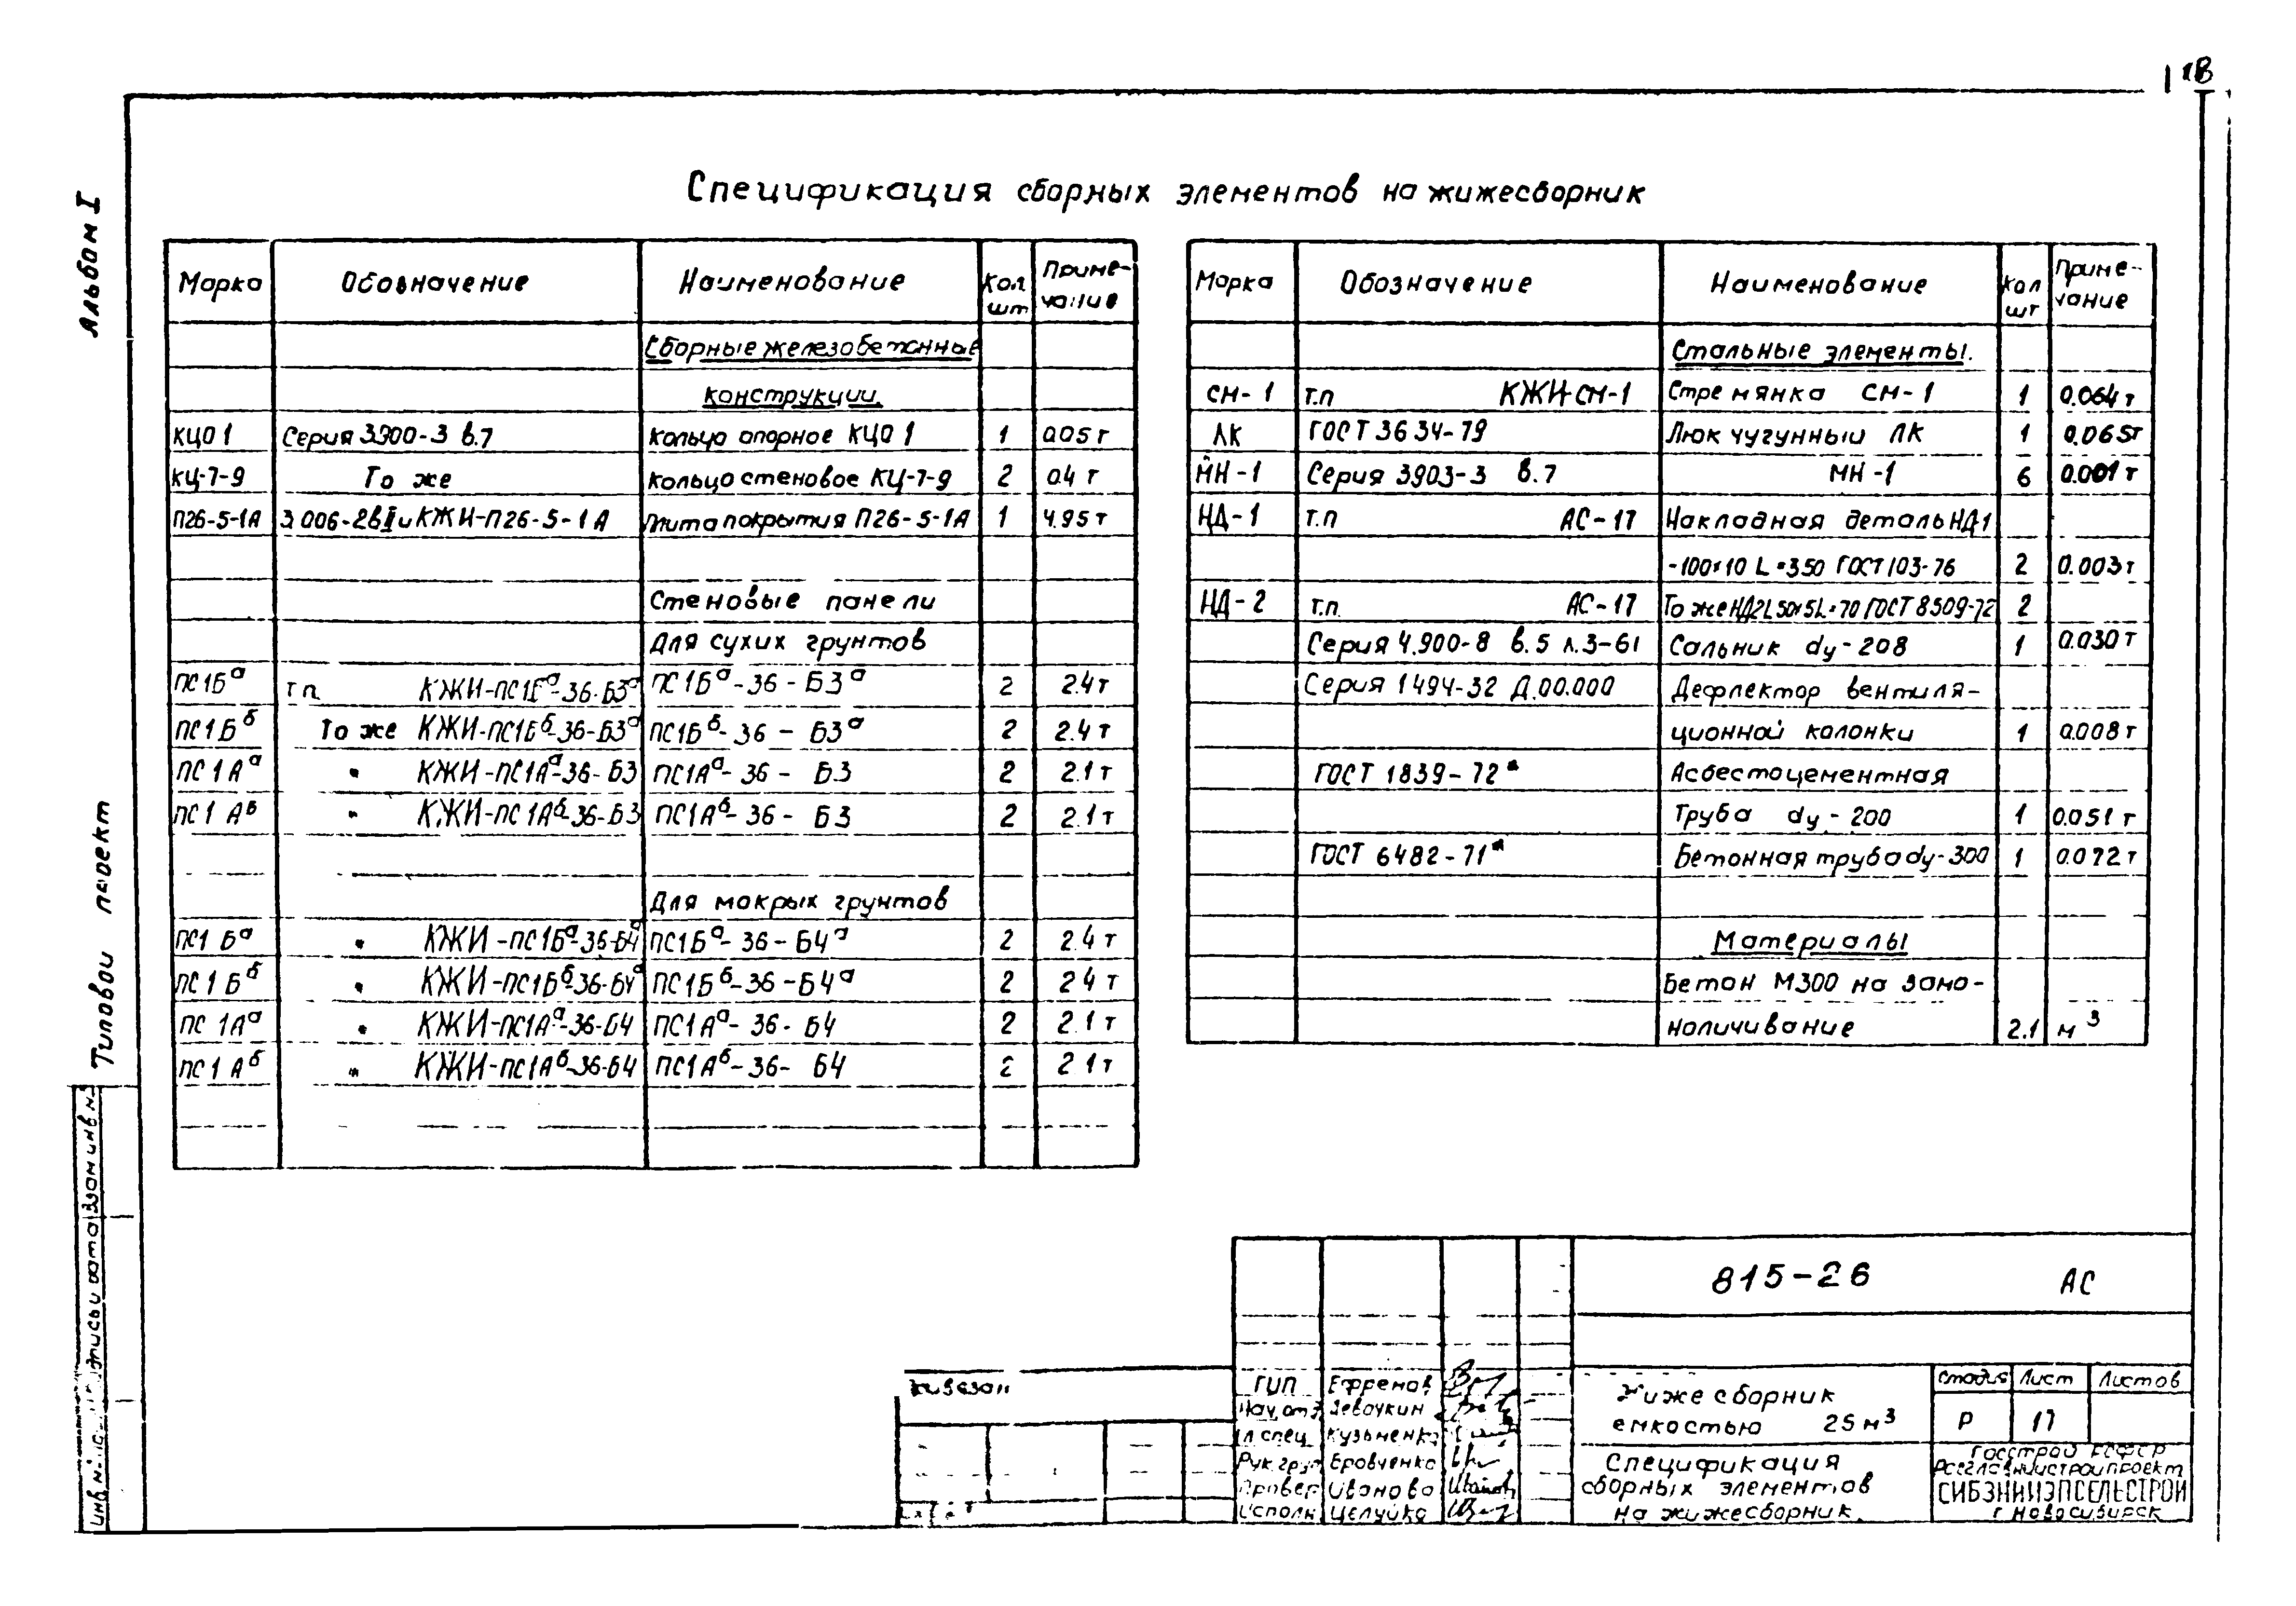 18
Альбом I
Типовой проект
Спецификация сборных элементов на жижесборник
Марка Обозначение Наименование Кол шт Примечание
Сборные железобетонные
конструкции.
КЦО 1 Серия 3.900-3 в.7 Кольцо опорное КЦО 1 1 0.05 т
КЦ-7-9 То же Кольцо стеновое КЦ-7-9 2 0.4 т
П26-5-1А 3.006-2вII и КЖИ-П26-5-1А Плита покрытия П26-5-1А 1 4.95 т
Стеновые панели
Для сухих грунтов
ПС1Бᵃ т.п. КЖИ-ПС1Бᵃ-36-Б3ᵃ ПС1Бᵃ-36-Б3ᵃ 2 2.4 т
ПС1Бᵇ То же КЖИ-ПС1Бᵇ-36-Б3ᵃ ПС1Бᵇ-36-Б3ᵃ 2 2.4 т
ПС1Аᵃ " КЖИ-ПС1Аᵃ-36-Б3 ПС1Аᵃ-36-Б3 2 2.1 т
ПС1Аᵇ " КЖИ-ПС1Аᵇ-36-Б3 ПС1Аᵇ-36-Б3 2 2.1 т
Для мокрых грунтов
ПС1Бᵃ " КЖИ-ПС1Бᵃ-36-Б4ᵃ ПС1Бᵃ-36-Б4ᵃ 2 2.4 т
ПС1Бᵇ " КЖИ-ПС1Бᵇ-36-Б4ᵃ ПС1Бᵇ-36-Б4ᵃ 2 2.4 т
ПС1Аᵃ " КЖИ-ПС1Аᵃ-36-Б4 ПС1Аᵃ-36-Б4 2 2.1 т
ПС1Аᵇ " КЖИ-ПС1Аᵇ-36-Б4 ПС1Аᵇ-36-Б4 2 2.1 т
Марка Обозначение Наименование Кол шт Примечание
Стальные элементы.
СН-1 т.п КЖИ-СН-1 Стремянка СН-1 1 0.064 т
ЛК ГОСТ 3634-79 Люк чугунный ЛК 1 0.065т
МН-1 Серия 3903-3 в.7 МН-1 6 0.001 т
НД-1 т.п АС-17 Накладная деталь НД1
-100×10 L=350 ГОСТ 103-76 2 0.003 т
НД-2 т.п. АС-17 То же НД2 L50×5 L=70 ГОСТ 8509-72 2
Серия 4.900-8 в.5 л.3-61 Сальник dy-208 1 0.030 т
Серия 1494-32 Д.00.000 Дефлектор вентиля-
ционной колонки 1 0.008 т
ГОСТ 1839-72* Асбестоцементная
Труба dy-200 1 0.051 т
ГОСТ 6482-71* Бетонная труба dy-300 1 0.072 т
Материалы
Бетон М300 на замо-
ноличивание 2.1 м³
815-26 АС
ГИП Ефремов
Нач. отд. Девочкин
Гл спец Кузьменко
Рук. груп Еровченко
Провер Иванова
Исполн Целуйко
Жижесборник
емкостью 25 м³
Спецификация
сборных элементов
на жижесборник.
Стадия Лист Листов
Р 17
Госстрой РСФСР
Росглавниистройпроект
СИБЗНИИЭПСЕЛЬСТРОЙ
г Новосибирск